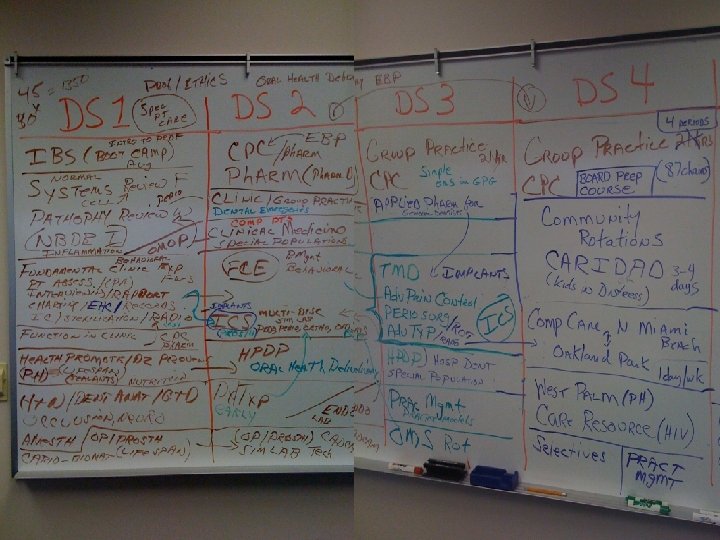 45 = 1350
30
Prof/ETHICS
ORAL HEALTH Delivery
EBP
DS1
SPEC
PT
CARE
INTRO TO
IBS (BOOT CAMP)
Aug
NORMAL
SYSTEMS REVIEW F
CELL
PERIO
PATHOPHY REVIEW W
NBDE I
INFLAMMATION
OMOP I
BEHAVIORAL
FUNDAMENTAL CLINIC EXP
PT ASSESS/CPR
INTERVIEWING/RAPPORT
CHARTING/EHR/RECORDS
IC/STERILIZATION/RADIO
FUNCTION IN CLINIC
HEALTH PROMOTE/DZ PREVENT
(PH) (LIFESPAN)
SEALANTS
NUTRITION
H+N/DENT ANAT/GTD
OCCLUSION, NEURO
ANESTH/OP/PROSTH
CARIO-BIOMAT (LIFESPAN)
DS 2
CPC
EBP
/PHARM
PHARM (Pharm D)
CLINIC/GROUP PRACTICE
DENTAL Emergencies
COMP PTS
CLINICAL MEDICINE
SPECIAL POPULATIONS
FCE
BMgmt
BEHAVIORAL
ICS
MULTI-DISC
SIM LAB
HPDP
ORAL HEALTH Delivery
EARLY
ENDO
LAB
(OP/PROSTH) CAD/CAM
SIM LAB TECH
DS3
GROUP PRACTICE
21 HR
CPC
Simple
ons in GPG
APPLIED PHARM for
General Dentists
TMD
IMPLANTS
Adv Pain Control
PERIO SURG
Adv TYP
ICS
HPDP/ HOSP DENT
SPECIAL POPULATION
PRAC Mgmt
OMS Rot
DS4
4 PERIODS
GROUP PRACTICE 21 HRS
(87 chairs)
CPC
BOARD PREP
COURSE
Community
Rotations
CARIDAD
3-4
days
(Kids in Distress)
COMP CARE N MIAMI
BEACH
Oakland Park
1 day/wk
WEST PALM (PH)
CARE RESOURCE (HIV)
Selectives
PRACT
MGMT